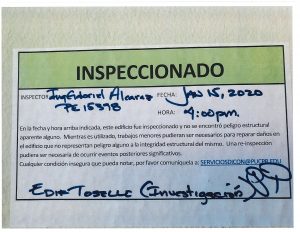 INSPECCIONADO
INSPECTOR: Ing Gabriel Alcaraz FECHA: JAN 15, 2020
PE 15398 HORA: 4:00pm.
En la fecha y hora arriba indicada, este edificio fue inspeccionado y no se encontró peligro estructural
aparente alguno. Mientras es utilizado, trabajos menores pudieran ser necesarios para reparar daños en
el edificio que no representan peligro alguno a la integridad estructural del mismo. Una re-inspección
pudiera ser necesaria de ocurrir eventos posteriores significativos.
Cualquier condición insegura que pueda notar, por favor comuníquela a: SERVICIOSDICON@PUCPR.EDU
EDIF TOSELLO (Investigación)